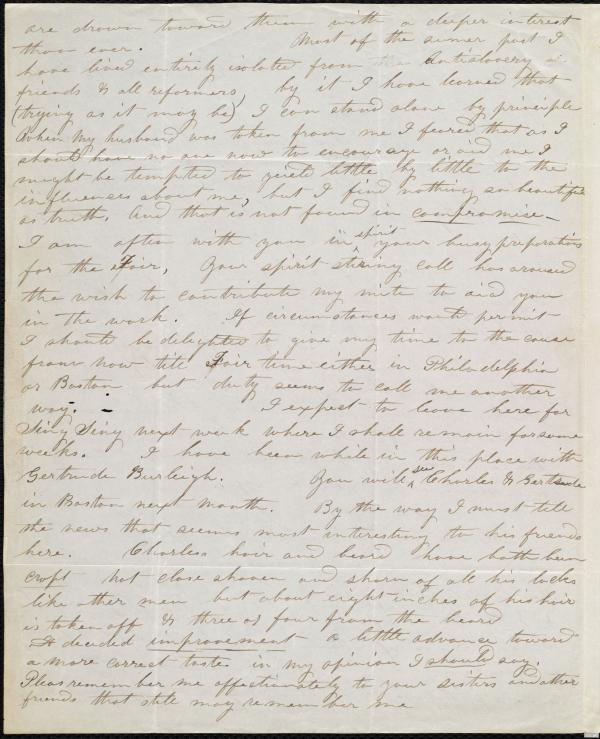 are drawn toward them with a deeper interest
than ever. Most of the sumer past I
have lived entirely isolated from the Antislavery
friends & all reformers, by it I have learned that
(trying as it may be) I can stand alone by principle
When my husband was taken from me I feared that as I
should have no one now to encourage or aid me I
might be tempted to yield little by little to the
influences about me, but I find nothing so beautiful
as truth, and that is not found in compromise—
I am often with you in spirit your busy preparations
for the Fair, Your spirit stiring call has aroused
the wish to contribute my mite to aid you
in the work. If circumstances would permit
I should be delighted to give my time to the cause
from now till Fair time either in Philadelphia
or Boston but duty seems to call me another
way. I expect to leave here for
Sing Sing next week where I shall remain for some
weeks. I have been while in this place with
Gertrude Burleigh. You will see Charles & Gertrude
in Boston next month. By the way I must tell
the news that seems most interesting to his friends
here. Charles hair and beard have both been
cropt not close shaven and shorn of all his locks
like other men but about eight inches of his hair
is taken off & three or four from the beard
A decided improvement a little advance toward
a more correct taste in my opinion I should say.
Pleas remember me affectionately to your sisters and other
friends that still may remember me